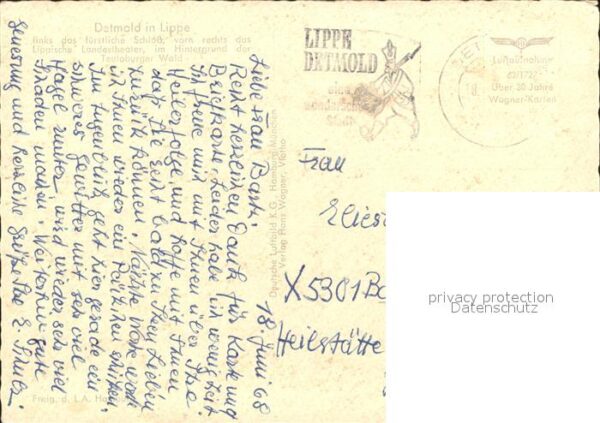 Detmold in Lippe
links das fürstliche Schloß, vorn rechts das
Lippische Landestheater, im Hintergrund der
Teutoburger Wald
LIPPE
DETMOLD
eine
wunderschöne
Stadt
Luftaufnahme
62/1722
Über 30 Jahre
Wagner-Karten
Deutsche Luftbild K.G., Hamburg
Verlag Hans Wagner, Vlotho
Freig. d. L.A.
18. Juni 68
Liebe Frau Bart
Recht herzlichen Dank für Karte und
Briefkarte. Leider habe ich wenig Zeit
Ich freue mich mit Ihnen über Ihre
Heilerfolge und hoffe mit Ihnen
daß Sie recht bald zu Ihren Lieben
zurück können. Nächste Woche werde
ich Ihnen wieder ein Päckchen schicken.
Im Augenblick geht hier gerade ein
schweres Gewitter mit sehr viel
Hagel runter, wird wieder sehr viel
Schaden machen. Weiterhin gute
Genesung und herzliche Grüße Ihre E.
Frau
X5301
Heilstätte
privacy protection
Datenschutz